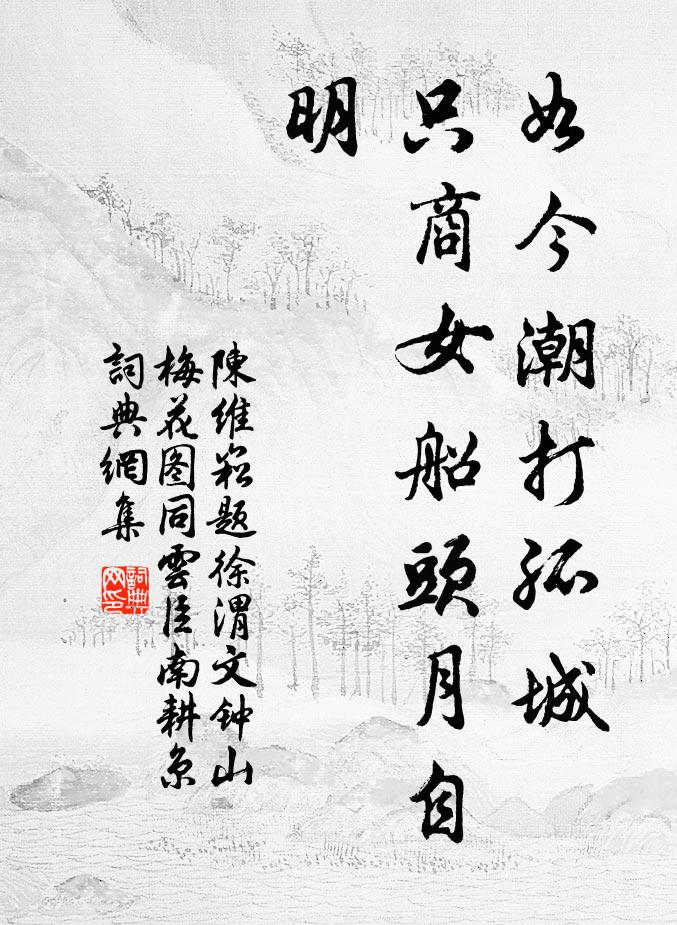 如今潮打孤城
只商女船頭月自
明
陳維崧题徐渭文钟山
梅花图同雲臣南耕京
詞典網集
詞典
网印